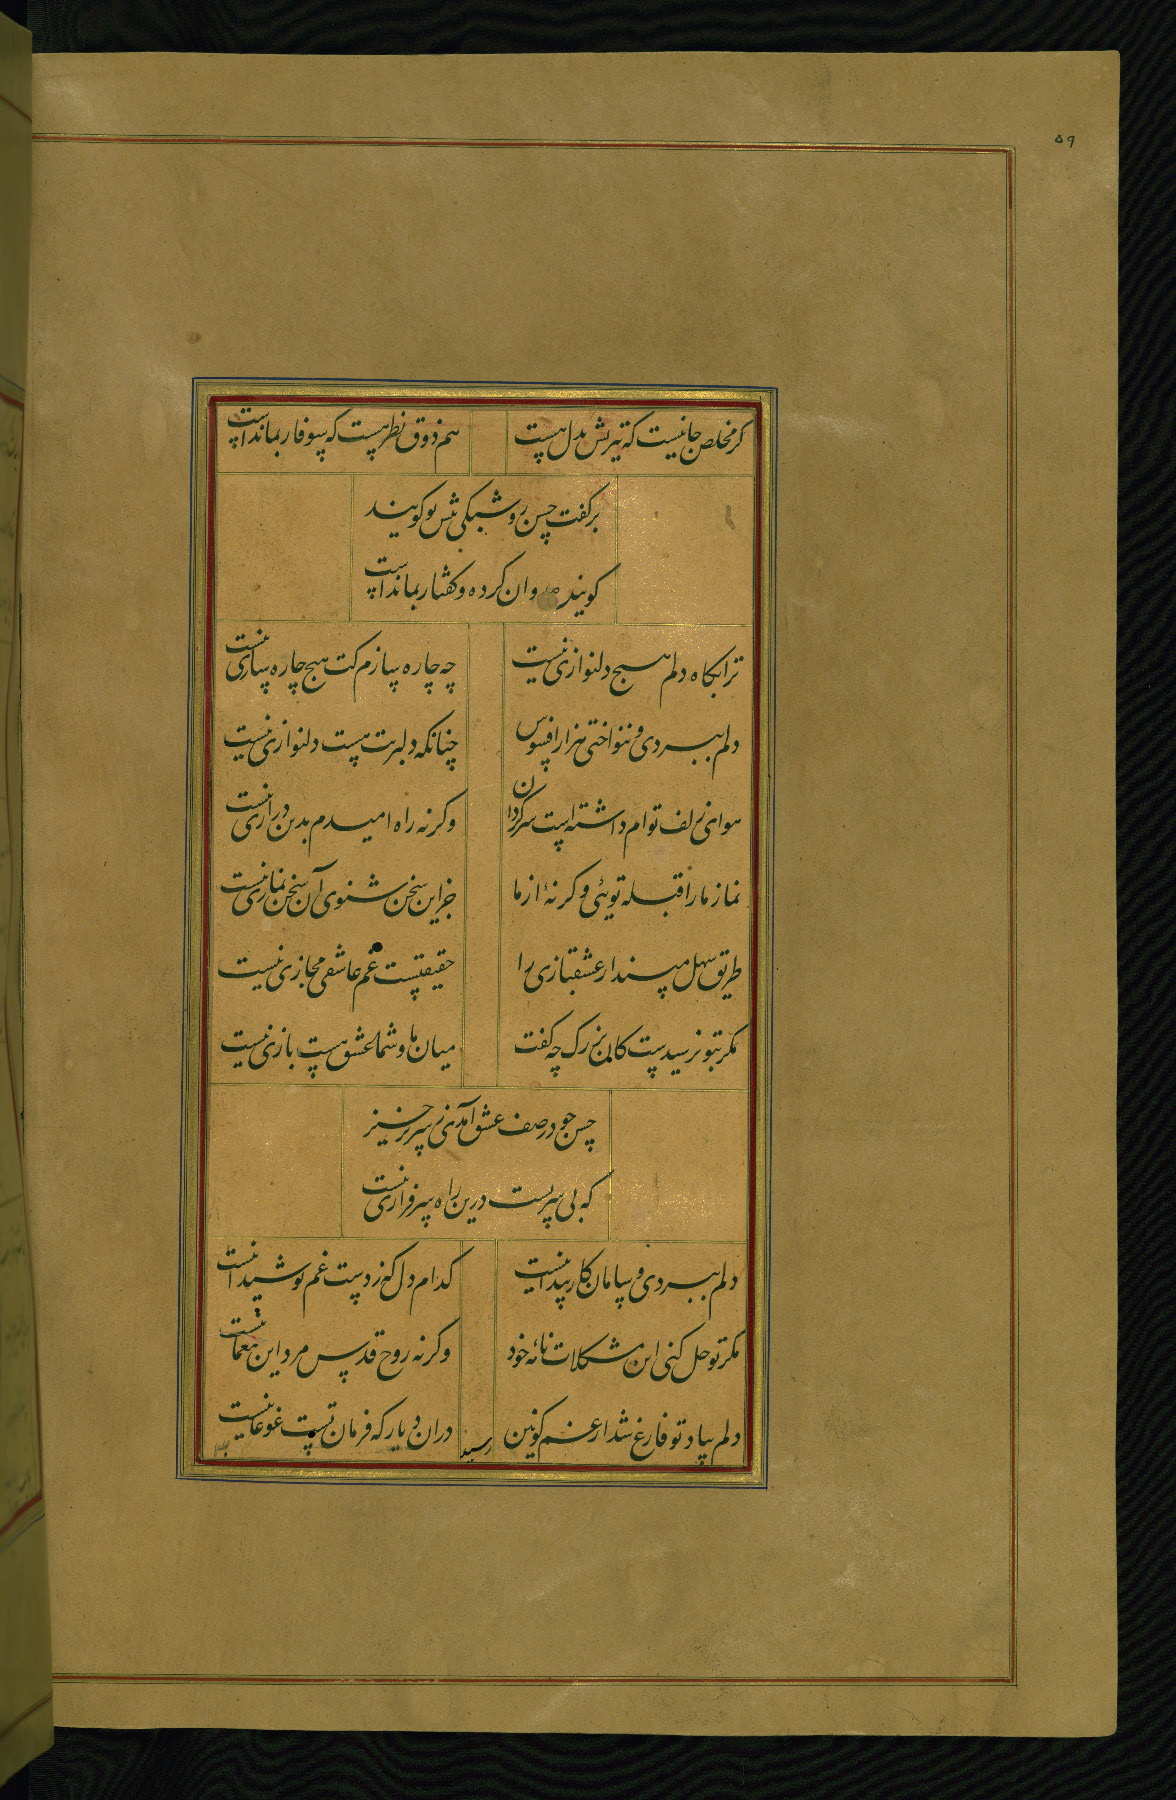 ۵۹
کر مخلص جانیست که تیرش بدل هست هم ذوق نظر هست که سوفار بماندست
برکفت حسن رو شبکی پیش تو کویند
کویند روان کرده و کفتار بماندست
ترا بکاه دلم هیچ دلنوازی نیست چه چاره سازم کت هیچ چاره سازی نیست
دلم ببردی و ننواختی هزار افسوس چنانکه دلبریت هست دلنوازی نیست
هوای زلف توام داشته است سرکردان وکرنه راه امیدم بدین درازی نیست
نماز ما را قبله توئی وکرنه از ما جز این سخن شنوی آن سخن نمازی نیست
طریق سهل مپندار عشقبازی را حقیقتست غم عاشقی مجازی نیست
مکر بتو نرسیدست کان بزرک چه کفت میان ما و شما عشق هست بازی نیست
حسن جو در صف عشق آمدی ز سر برخیز
که بی سریست درین راه سرفرازی نیست
دلم ببردی و سامان کار پیدا نیست کدام دل که ز دست غم تو شیدا نیست
مکر تو حل کنی این مشکلات نائه خود وکرنه روح قدس مرد این معما نیست
دلم بیاد تو فارغ شد از غم کونین دران دیار که فرمان تست غوغا نیست
رسید